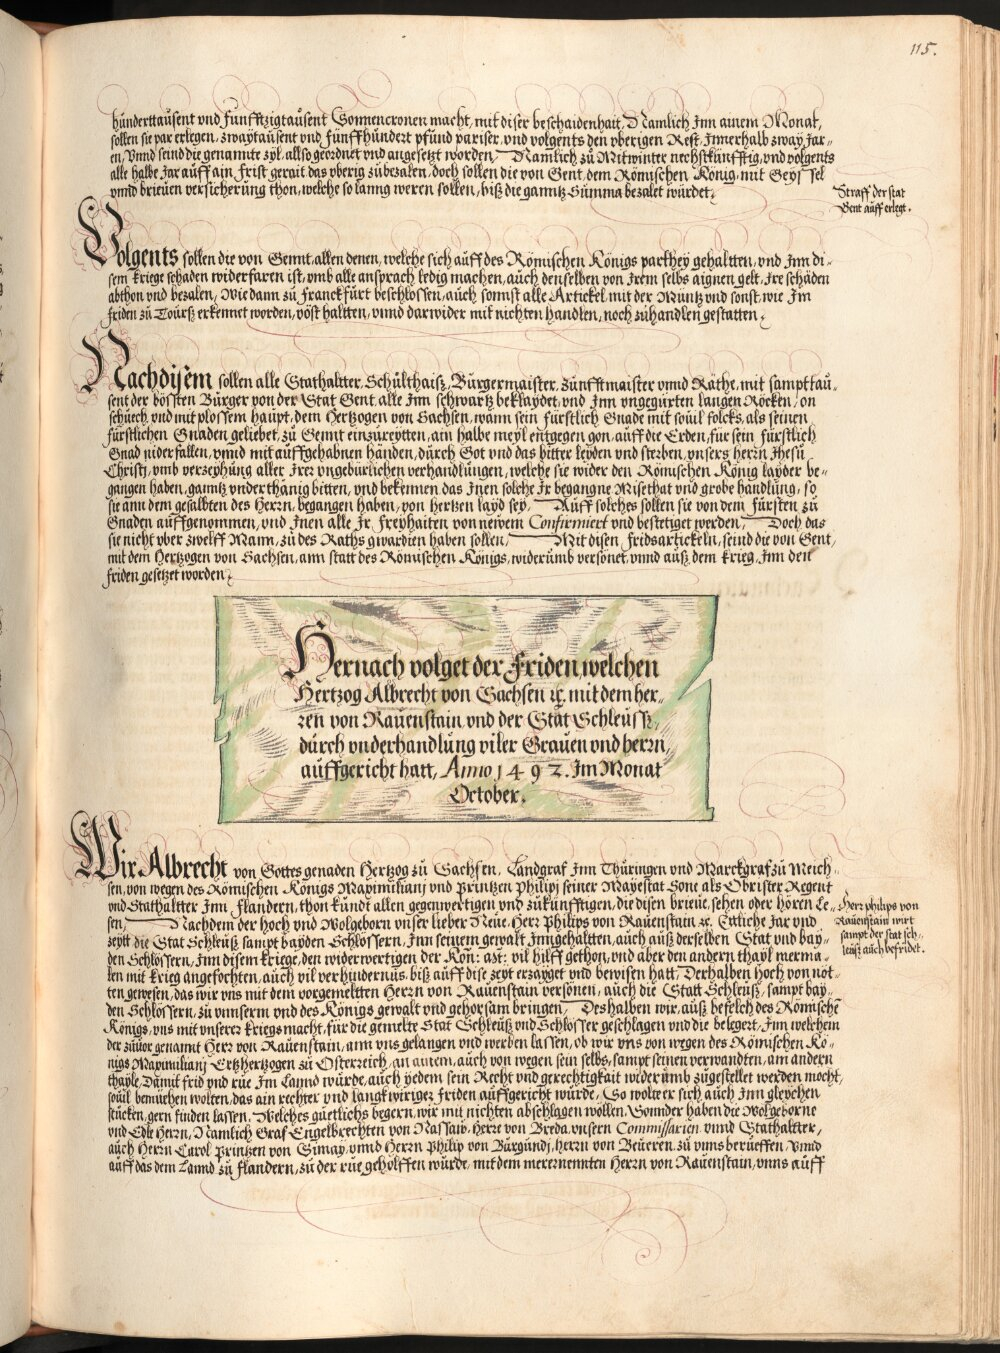 115.
hůnderttaůsent vnd fůnfftzigtaůsent Sonnencronen macht, mit diser beschaidenhait, Namlich Jnn ainem Monat,
sollen sie par erlegen, zwaytaůsent vnd fůnffhůndert pfůnd pariser, vnd volgents den vberigen Rest, Jnnerhalb zway Jar=
en, Vnnd seind die genannte zyl, allso geordnet vnd angesetzt worden, Namlich zů Mitwinter nechstkůnfftig, vnd volgents
alle halbe Jar aůff ain frist gerait das vberig zůbezalen, doch sollen die von Gent, dem Römischen König, mit Geyssel
vnnd brieůen versicherůng thon, welche so lanng weren sollen, biß die ganntz Sůmma bezalet wůrdet.
Straff der stat
Gent aůff erlegt.
Volgents sollen die von Gennt, allen denen, welche sich aůff des Römischen Königs parthey gehaltten, vnd Jnn di=
sem kriege schaden widerfaren ist, vmb alle ansprach ledig machen, aůch denselben von Jrem selbs aignen gelt, Jre schäden
abthon vnd bezalen, Wie dann zů Franckfůrt beschlossen, aůch sonnst alle Artickel mit der Můntz vnd sonst, wie Jm
friden zů Toůrß erkennet worden, vöst haltten, vnnd darwider mit nichten handlen, noch zůhandlen gestatten.
Nachdisem sollen alle Stathaltter, Schůlthaiß, Bůrgermaister, zůnfftmaister vnnd Räthe, mit sampt taů=
sent der bössten Bůrger von der Stat Gent, alle Jnn schwartz beklaydet, vnd Jnn vngegůrten langen Röcken, on
schůech, vnd mit plossem haůpt, dem Hertzogen von Sachsen, wann sein fůrstlich Gnade mit soůil folcks, als seinen
fůrstlichen Gnaden geliebet, zů Gennt einzůreytten, ain halbe meyl entgegen gon, aůff die Erden, fůr sein fůrstlich
Gnad nider fallen, vnnd mit aůffgehabnen händen, důrch Got vnd das bitter leyden vnd sterben, vnsers herrn Jhesů
Christj, vmb verzeyhůng aller Jrer vngebůrlichen verhandlůngen, welche sie wider den Römischen König layder be=
gangen haben, ganntz vnderthänig bitten, vnd bekennen das Jnen solche Jr begangne Misethat vnd grobe handlůng, so
sie ann dem gesalbten des Herrn, begangen haben, von hertzen layd sey, Aůff solches sollen sie von dem Fůrsten zů
Gnaden aůffgenommen, vnd Jnen alle Jr Freyhaiten von neẅem Confirmiert vnd bestetiget werden, Doch das
sie nicht vber zwelff Mann, zů des Raths gwardien haben sollen, Mit disen fridsartickeln, seind die von Gent,
mit dem Hertzogen von Sachsen, ann statt des Römischen Königs, widerůmb versönet, vnnd aůß dem krieg, Jnn den
friden gesetzet worden.
Hernach volget der Friden, welchen
Hertzog Albrecht von Sachsen ꝛc. mit dem her=
ren von Raůenstain vnd der Stat Schleůss,
důrch vnderhandlůng viler Graůen vnd herrn,
aůffgericht hatt, Anno 1492. Jm Monat
October.
Wir Albrecht von Gottes genaden Hertzog zů Sachsen, Landgraf Jnn Thůringen vnd Marckgraf zů Meich=
sen, von wegen des Römischen Königs Maximilianj vnd Printzen Philipj seiner Mayestat Sone als Obrister Regent
vnd Stathaltter Jnn Flandern, thon kůndt allen gegenwertigen vnd zůkůnfftigen, die disen brieůe, sehen oder hören le=
sen, Nachdem der Hoch vnd Wolgeborn vnser lieber Neůe, Herr Philips von Raůenstain ꝛc. Ettliche Jar vnd
zeytt die Stat Schleůß sampt bayden Schlossern, Jnn seinem gewalt Jnngehaltten, aůch aůß derselben Stat vnd bay=
den Schlössern, Jnn disem kriege, den widerwertigen der Kön: azt: vil hilff gethon, vnd aber den andern thayl merma=
len mit krieg angefochten, aůch vil verhindernůs, biß aůff dise zeyt erzayget vnd bewisen hatt, Derhalben hoch von nöt=
ten gewesen, das wir vns mit dem vorgemeltten Herrn von Raůenstain versönen, aůch die Statt Schleůß, sampt bay=
den Schlössern, zů vnnserm vnd des Königs gewalt vnd gehorsam bringen, Deshalben wir, aůß befelch des Römischē
Königs, vns mit vnserer kriegsmacht, fůr die gemelte Stat Schleůß vnd Schlosser geschlagen vnd die belegert, Jnn welchem
der zůůor genannt Herr von Raůenstain, ann vns gelangen vnd werben lassen, ob wir vns von wegen des Römischen Kö=
nigs Maximilianj Ertzhertzogen zů Österreich, an ainem, aůch von wegen sein selbs, sampt seinen verwandten, am andern
thayle, Damit frid vnd růe Jm Lannd wůrde, aůch yedem sein Recht vnd gerechtigkait widerůmb zůgestellet werden mocht,
soůil bemůehen wolten, das ain rechter vnd langkwiriger friden aůffgericht wůrde, So wolte er sich aůch Jnn gleychen
stůcken, gern finden lassen, Welches gůetlichs begern, wir mit nichten abschlagen wollen, Sonnder haben die Wolgeborne
vnd Edle Herrn, Namlich Graf Engelbrechten von Nassaw, Herre von Breda, vnsern Commissarien vnnd Stathaltter,
aůch Herrn Carol Printzen von Simay, vnnd Herrn Philip von Bůrgůndj, herrn von Beůeren, zů vnns berůeffen, Vnnd
aůff das dem Lannd zů Flandern, zů der růe geholffen wůrde, mit dem merernennten Herrn von Raůenstain, vnns aůff
Herr philips von
Raůenstain wirt
sampt der stat sch=
leůß aůch befridet.